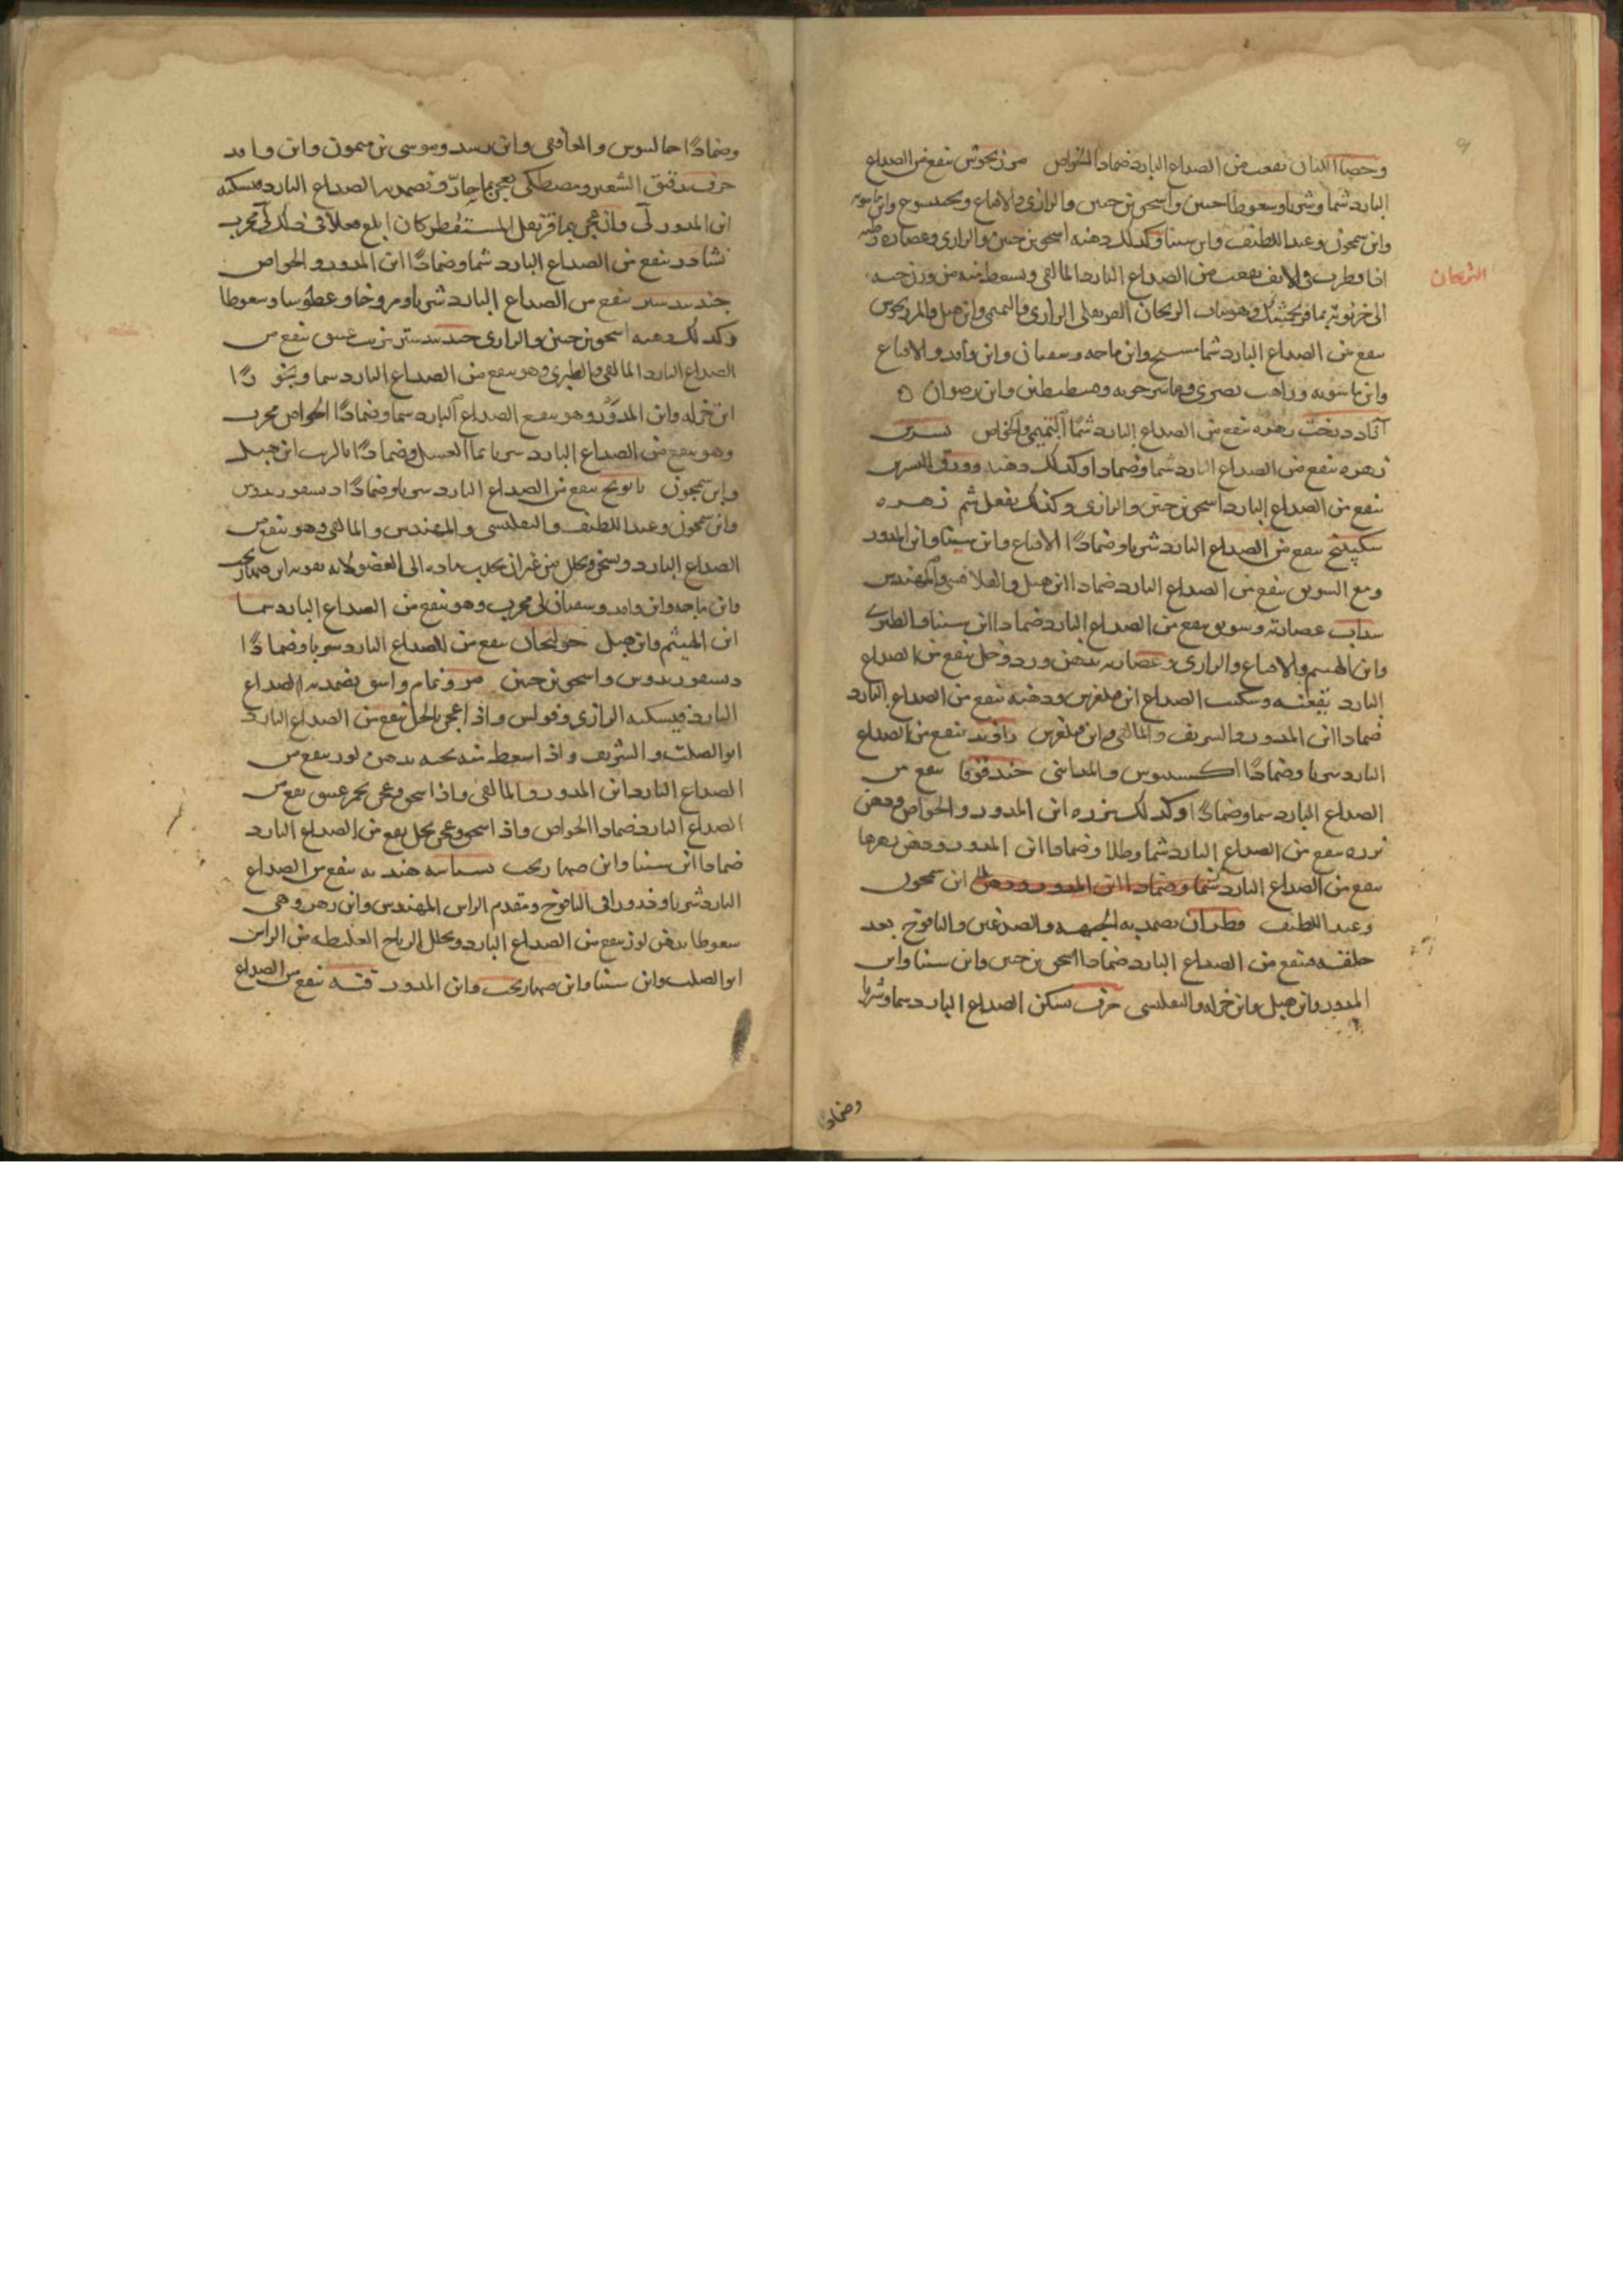 وحصا اللبان نفعت من الصداع البارد ضمادا الخواص مرزنجوش ينفع من الصداع
البارد شما وشربا وسعوطا حبيش واسحق بن حنين والرازي والاقناع وبختيشوع وابن ماسويه
وابن سمجون وعبد اللطيف وابن سينا وكذلك دهنه اسحق بن حنين والرازي وعصارة رطبه
اذا قطرت في الانف نفعت من الصداع البارد المالقي ويسعط منه من وزن حبه
الى خرنوبة بما فرنجمشك وهو نبات الريحان القرنفلي الرازي والتميمي وابن هبل والمرزنجوش
ينفع من الصداع البارد شما مسيح وابن ماجه وسفيان وابن وافد والاقناع
وابن ماسويه وراهب بصرى وماسرجويه وقسطيطس وابن رضوان
آزاد درخت زهره ينفع من الصداع البارد شما التميمي والخواص نسرين
زهره ينفع من الصداع البارد شما وضمادا وكذلك دهنه وورق النسرين
ينفع من الصداع البارد اسحق بن حنين والرازي وكذلك يفعل شم زهره
سكبينج ينفع من الصداع البارد شربا وضمادا الاقناع وابن سينا وابن المدور
ومع السويق ينفع من الصداع البارد ضمادا ابن هبل والقلانسي والمهندس
سداب عصارته وسويق ينفع من الصداع البارد ضمادا ابن سينا والطبري
وابن الهيثم والاقناع والرازي وعصارته بدهن ورد وخل ينفع من الصداع
البارد ... الصداع ابن ... ودهنه ينفع من الصداع البارد
ضمادا ابن المدور والشريف والمالقي وابن ... راوند ينفع من الصداع
البارد شربا وضمادا ... حندقوقا ينفع من
الصداع البارد شما وضمادا وكذلك بزره ابن المدور والخواص ودهن
بزره ينفع من الصداع البارد شما وطلا وضمادا ابن المدور ودهن زهرها
ينفع من الصداع البارد شما وضمادا ابن المدور ودهن ابن سمجون
وعبد اللطيف قطران يضمد به الجبهه والصدغين واليافوخ بعد
حلقه فينفع من الصداع البارد ضمادا اسحق بن حنين وابن سينا وابن
المدور وابن هبل وابن جزله والتفليسي حرف يسكن الصداع البارد شما وشربا
وضمادا
وضمادا جالينوس والغافقي وابن رشد وموسى بن ميمون وابن وافد
حرف بدقيق الشعير ومصطكى يعجن بما حار ويضمد به الصداع البارد فيسكنه
ابن المدور لي وان عجن بما قرنفل المستقطر كان ابلغ فعلا في ذلك لي مجرب
نشادر ينفع من الصداع البارد شما وضمادا ابن المدور والخواص
جندبيدستر ينفع من الصداع البارد شربا ومروخا وعطوسا وسعوطا
وكذلك دهنه اسحق بن حنين والرازي جندبيدستر بزيت عتيق ينفع من
الصداع البارد المالقي والطبري وهو ينفع من الصداع البارد شما وبخورا
ابن جزله وابن المدور وهو ينفع الصداع البارد شما وضمادا الخواص مجرب
وهو ينفع من الصداع البارد شربا بما العسل وضمادا بالزيت ابن هبل
وابن سمجون بابونج ينفع من الصداع البارد شربا وضمادا ديسقوريدوس
وابن سمجون وعبد اللطيف والتفليسي والمهندس والمالقي وهو ينفع من
الصداع البارد ويسخن ويحلل من غير ان يجذب ماده الى العضو لانه يقويه ابن صهاربخت
وابن ماجه وابن وافد وسفيان لي مجرب وهو ينفع من الصداع البارد شما
ابن الهيثم وابن هبل خولنجان ينفع من الصداع البارد شربا وضمادا
ديسقوريدوس واسحق بن حنين مر ونمام واشق يضمد به الصداع
البارد فيسكنه الرازي وفولس واذا عجن بالخل نفع من الصداع البارد
ابو الصلت والشريف واذا سعط منه بحبه بدهن لوز ينفع من
الصداع البارد ابن المدور والمالقي واذا سحق وعجن بخمر عتيق نفع من
الصداع البارد ضمادا الخواص واذا سحق وعجن بخل نفع من الصداع البارد
ضمادا ابن سينا وابن صهاربخت بسباسه هنديه ينفع من الصداع
البارد شربا وذرورا في اليافوخ ومقدم الراس المهندس وابن زهر وهي
سعوطا بدهن لوز ينفع من الصداع البارد ويحلل الرياح الغليظه من الراس
ابو الصلت وابن سينا وابن صهاربخت وابن المدور قنه ينفع من الصداع